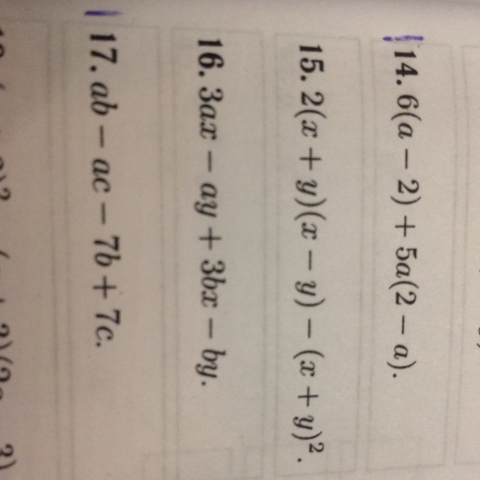 14. 6(a − 2) + 5a(2 − a).
15. 2(x + y)(x − y) − (x + y)².
16. 3ax − ay + 3bx − by.
17. ab − ac − 7b + 7c.